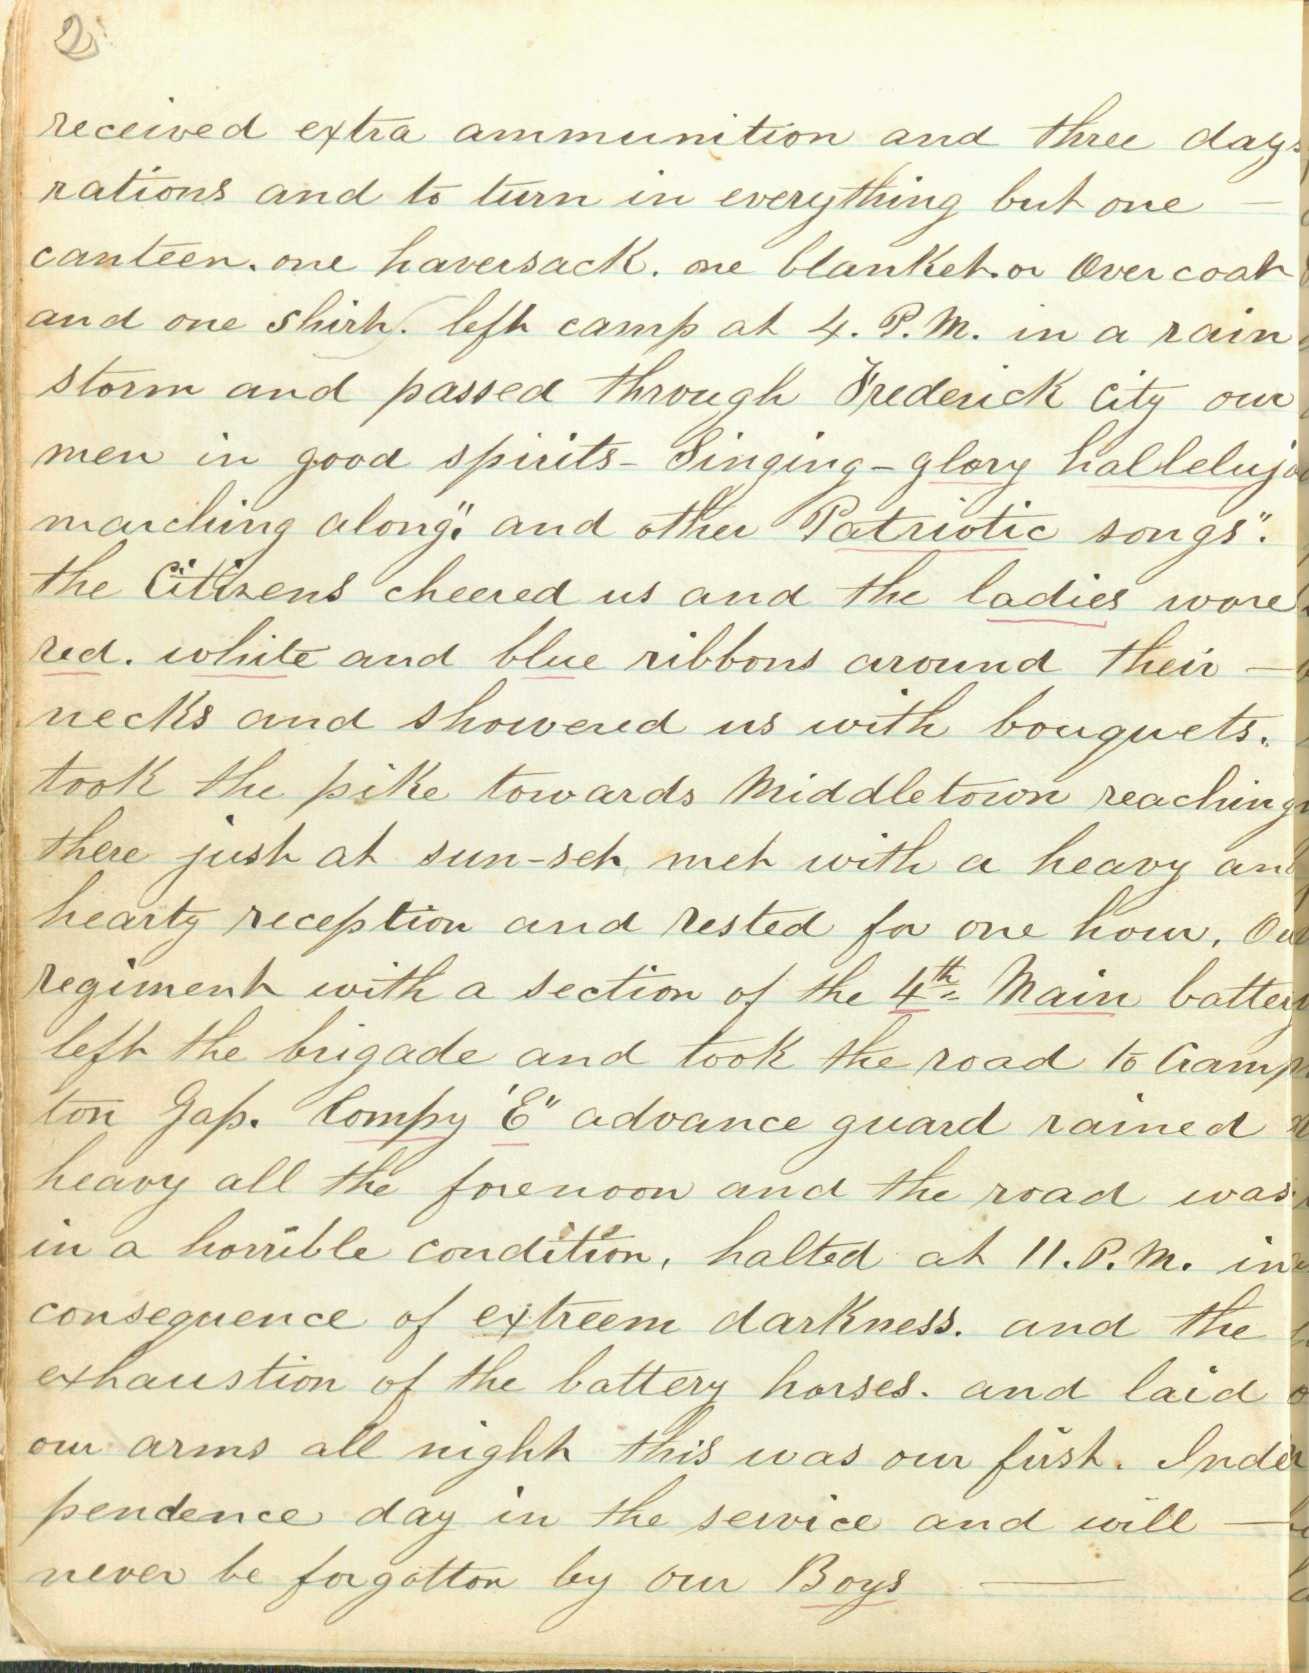 2
received extra ammunition and three days
rations and to turn in everything but one —
canteen. one haversack. one blanket. or Over coat
and one shirt. left camp at 4. P.M. in a rain
storm and passed through Frederick City our
men in good spirits - Singing - glory halleluja
marching along". and other "Patriotic songs".
the Citizens cheered us and the ladies wore
red. white and blue ribbons around their —
necks and showered us with bouquets.
took the pike towards Middletown reaching
there just at sun-set met with a heavy and
hearty reception and rested for one hour, Our
regiment with a section of the 4th= Main battery
left the brigade and took the road to Cramp
ton Gap. Compy "E" advance guard rained
heavy all the forenoon and the road was
in a horrible condition, halted at 11. P.M. in
consequence of extreem darkness. and the
exhaustion of the battery horses. and laid
our arms all night this was our first. Inde
pendence day in the service and will —
never be forgotton by our Boys —